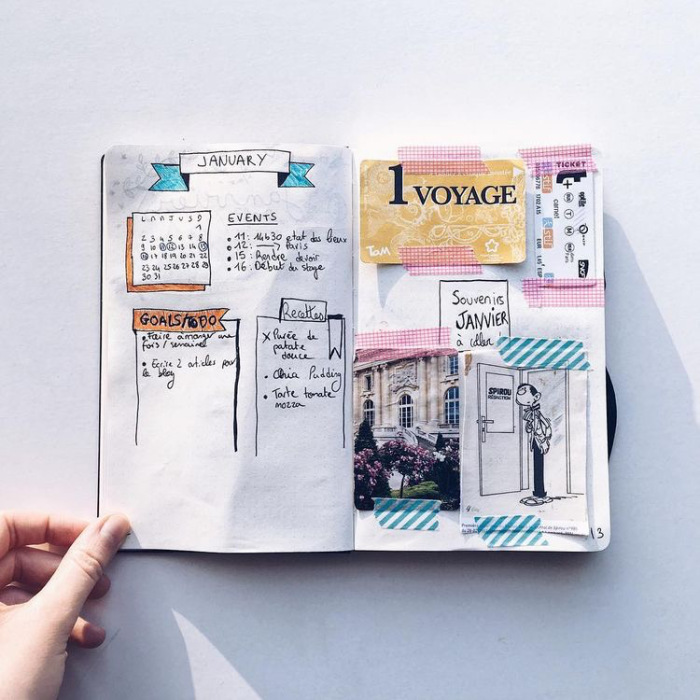 JANUARY
L M M J V S D
1
2 3 4 5 6 7 8
9 10 11 12 13 14 15
16 17 18 19 20 21 22
23 24 25 26 27 28 29
30 31
EVENTS
• 11: 14h30 état des lieux
• 12: → Paris
• 15: Rendre devoir
• 16: Début du stage
GOALS/TODO
• Faire à manger une
fois / semaine!
• Écrire 2 articles pour
le blog
Recettes
X Purée de
patate
douce
• Chia Pudding
• Tarte tomate
mozza
1 VOYAGE
Tam
TICKET
t+
carnet
Souvenirs
JANVIER
à coller!
SPIROU
RÉDACTION
13